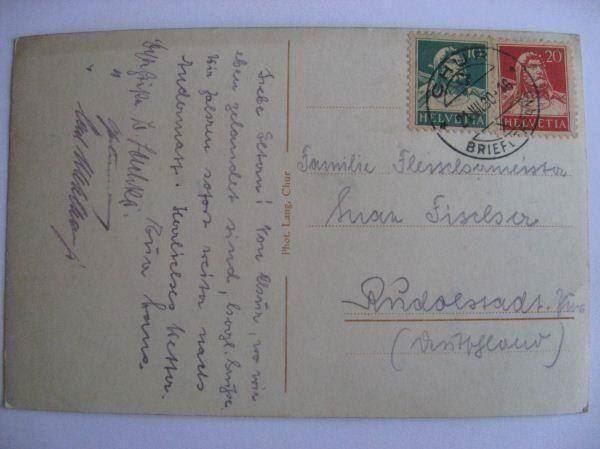 Liebe Eltern! Von Chur, wo wir
eben gelandet sind, herzl. Grüße.
Wir fahren sofort weiter nach
Andermatt. Herrliches Wetter.
Euer Hans.
Phot. Lang, Chur
10
HELVETIA
20
HELVETIA
CHUR
VIII.30.-18
BRIEF
Familie Fleischermeister
Fischer
Rudolstadt
(Deutschland)